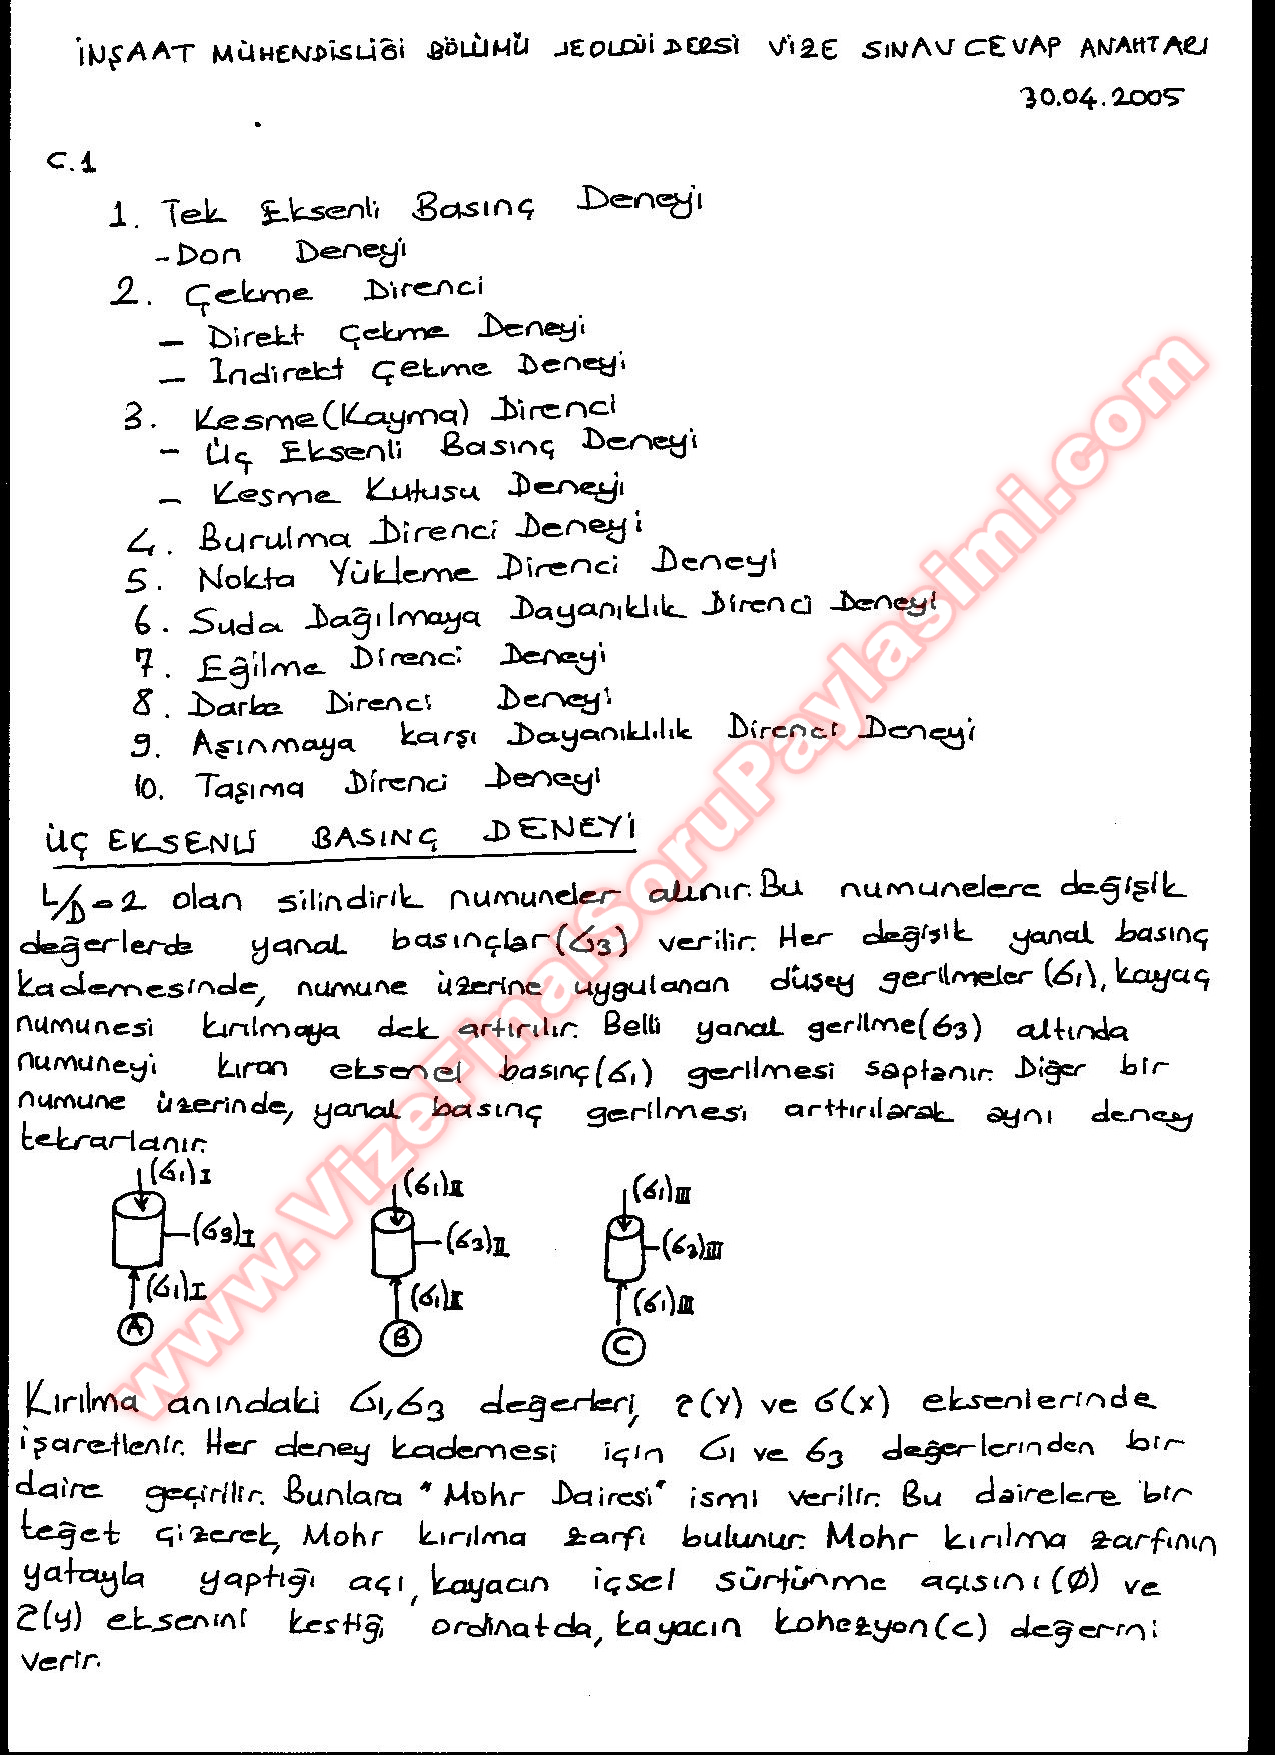 İNŞAAT MÜHENDİSLİĞİ BÖLÜMÜ JEOLOJİ DERSİ VİZE SINAV CEVAP ANAHTARI
30.04.2005
C.1
1. Tek Eksenli Basınç Deneyi
- Don Deneyi
2. Çekme Direnci
- Direkt Çekme Deneyi
- Indirekt Çekme Deneyi
3. Kesme (Kayma) Direnci
- Üç Eksenli Basınç Deneyi
- Kesme Kutusu Deneyi
4. Burulma Direnci Deneyi
5. Nokta Yükleme Direnci Deneyi
6. Suda Dağılmaya Dayanıklık Direnci Deneyi
7. Eğilme Direnci Deneyi
8. Darbe Direnci Deneyi
9. Aşınmaya karşı Dayanıklılık Direnci Deneyi
10. Taşıma Direnci Deneyi
ÜÇ EKSENLİ BASINÇ DENEYİ
L/D=2 olan silindirik numuneler alınır. Bu numunelere değişik
değerlerde yanal basınçlar (σ3) verilir. Her değişik yanal basınç
kademesinde, numune üzerine uygulanan düşey gerilmeler (σ1), kayaç
numunesi kırılmaya dek artırılır. Belli yanal gerilme (σ3) altında
numuneyi kıran eksenel basınç (σ1) gerilmesi saptanır. Diğer bir
numune üzerinde, yanal basınç gerilmesi arttırılarak aynı deney
tekrarlanır.
(σ1)I (σ1)II (σ1)III
(σ3)I (σ3)II (σ3)III
(σ1)I (σ1)II (σ1)III
A B C
Kırılma anındaki σ1, σ3 değerleri, τ(Y) ve σ(X) eksenlerinde
işaretlenir. Her deney kademesi için σ1 ve σ3 değerlerinden bir
daire geçirilir. Bunlara "Mohr Dairesi" ismi verilir. Bu dairelere bir
teğet çizerek, Mohr kırılma zarfı bulunur. Mohr kırılma zarfının
yatayla yaptığı açı, kayacın içsel sürtünme açısını (Ø) ve
τ(y) eksenini kestiği ordinatda, kayacın kohezyon (c) değerini
verir.
www.VizeFinalSoruPaylasimi.com